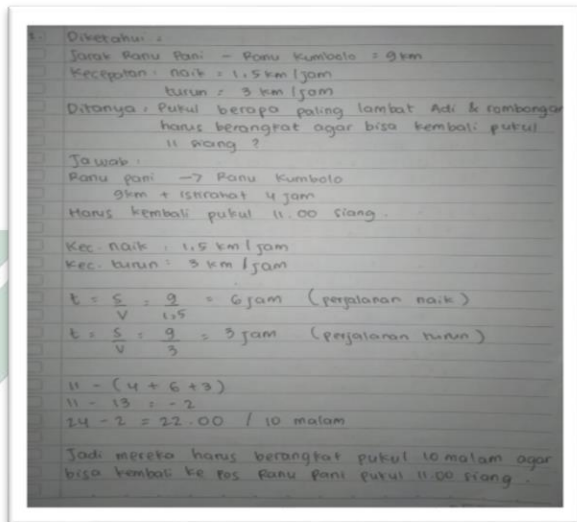 1. Diketahui :
Jarak Ranu Pani - Ranu Kumbolo = 9km
Kecepatan : naik = 1,5 km / jam
turun = 3 km / jam
Ditanya : Pukul berapa paling lambat Adi & rombongan
harus berangkat agar bisa kembali pukul
11 siang ?
Jawab :
Ranu pani -> Ranu Kumbolo
9km + istirahat 4 jam
Harus kembali pukul 11.00 siang.
Kec. naik : 1,5 km / jam
Kec. turun : 3 km / jam
t = s/v = 9/1,5 = 6 jam (perjalanan naik)
t = s/v = 9/3 = 3 jam (perjalanan turun)
11 - (4 + 6 + 3)
11 - 13 = -2
24 - 2 = 22.00 / 10 malam
Jadi mereka harus berangkat pukul 10 malam agar
bisa kembali ke pos Ranu Pani pukul 11.00 siang.